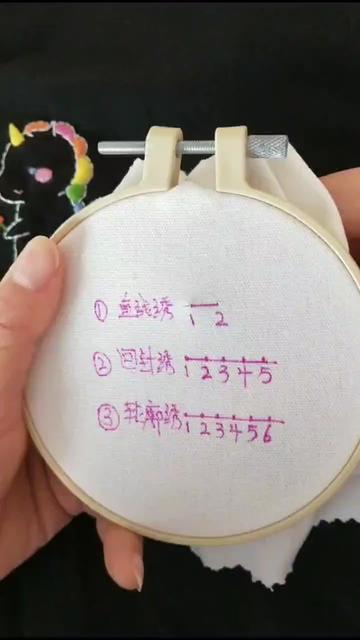 ① 直线绣 1 2
② 回针绣 1 2 3 4 5
③ 轮廓绣 1 2 3 4 5 6